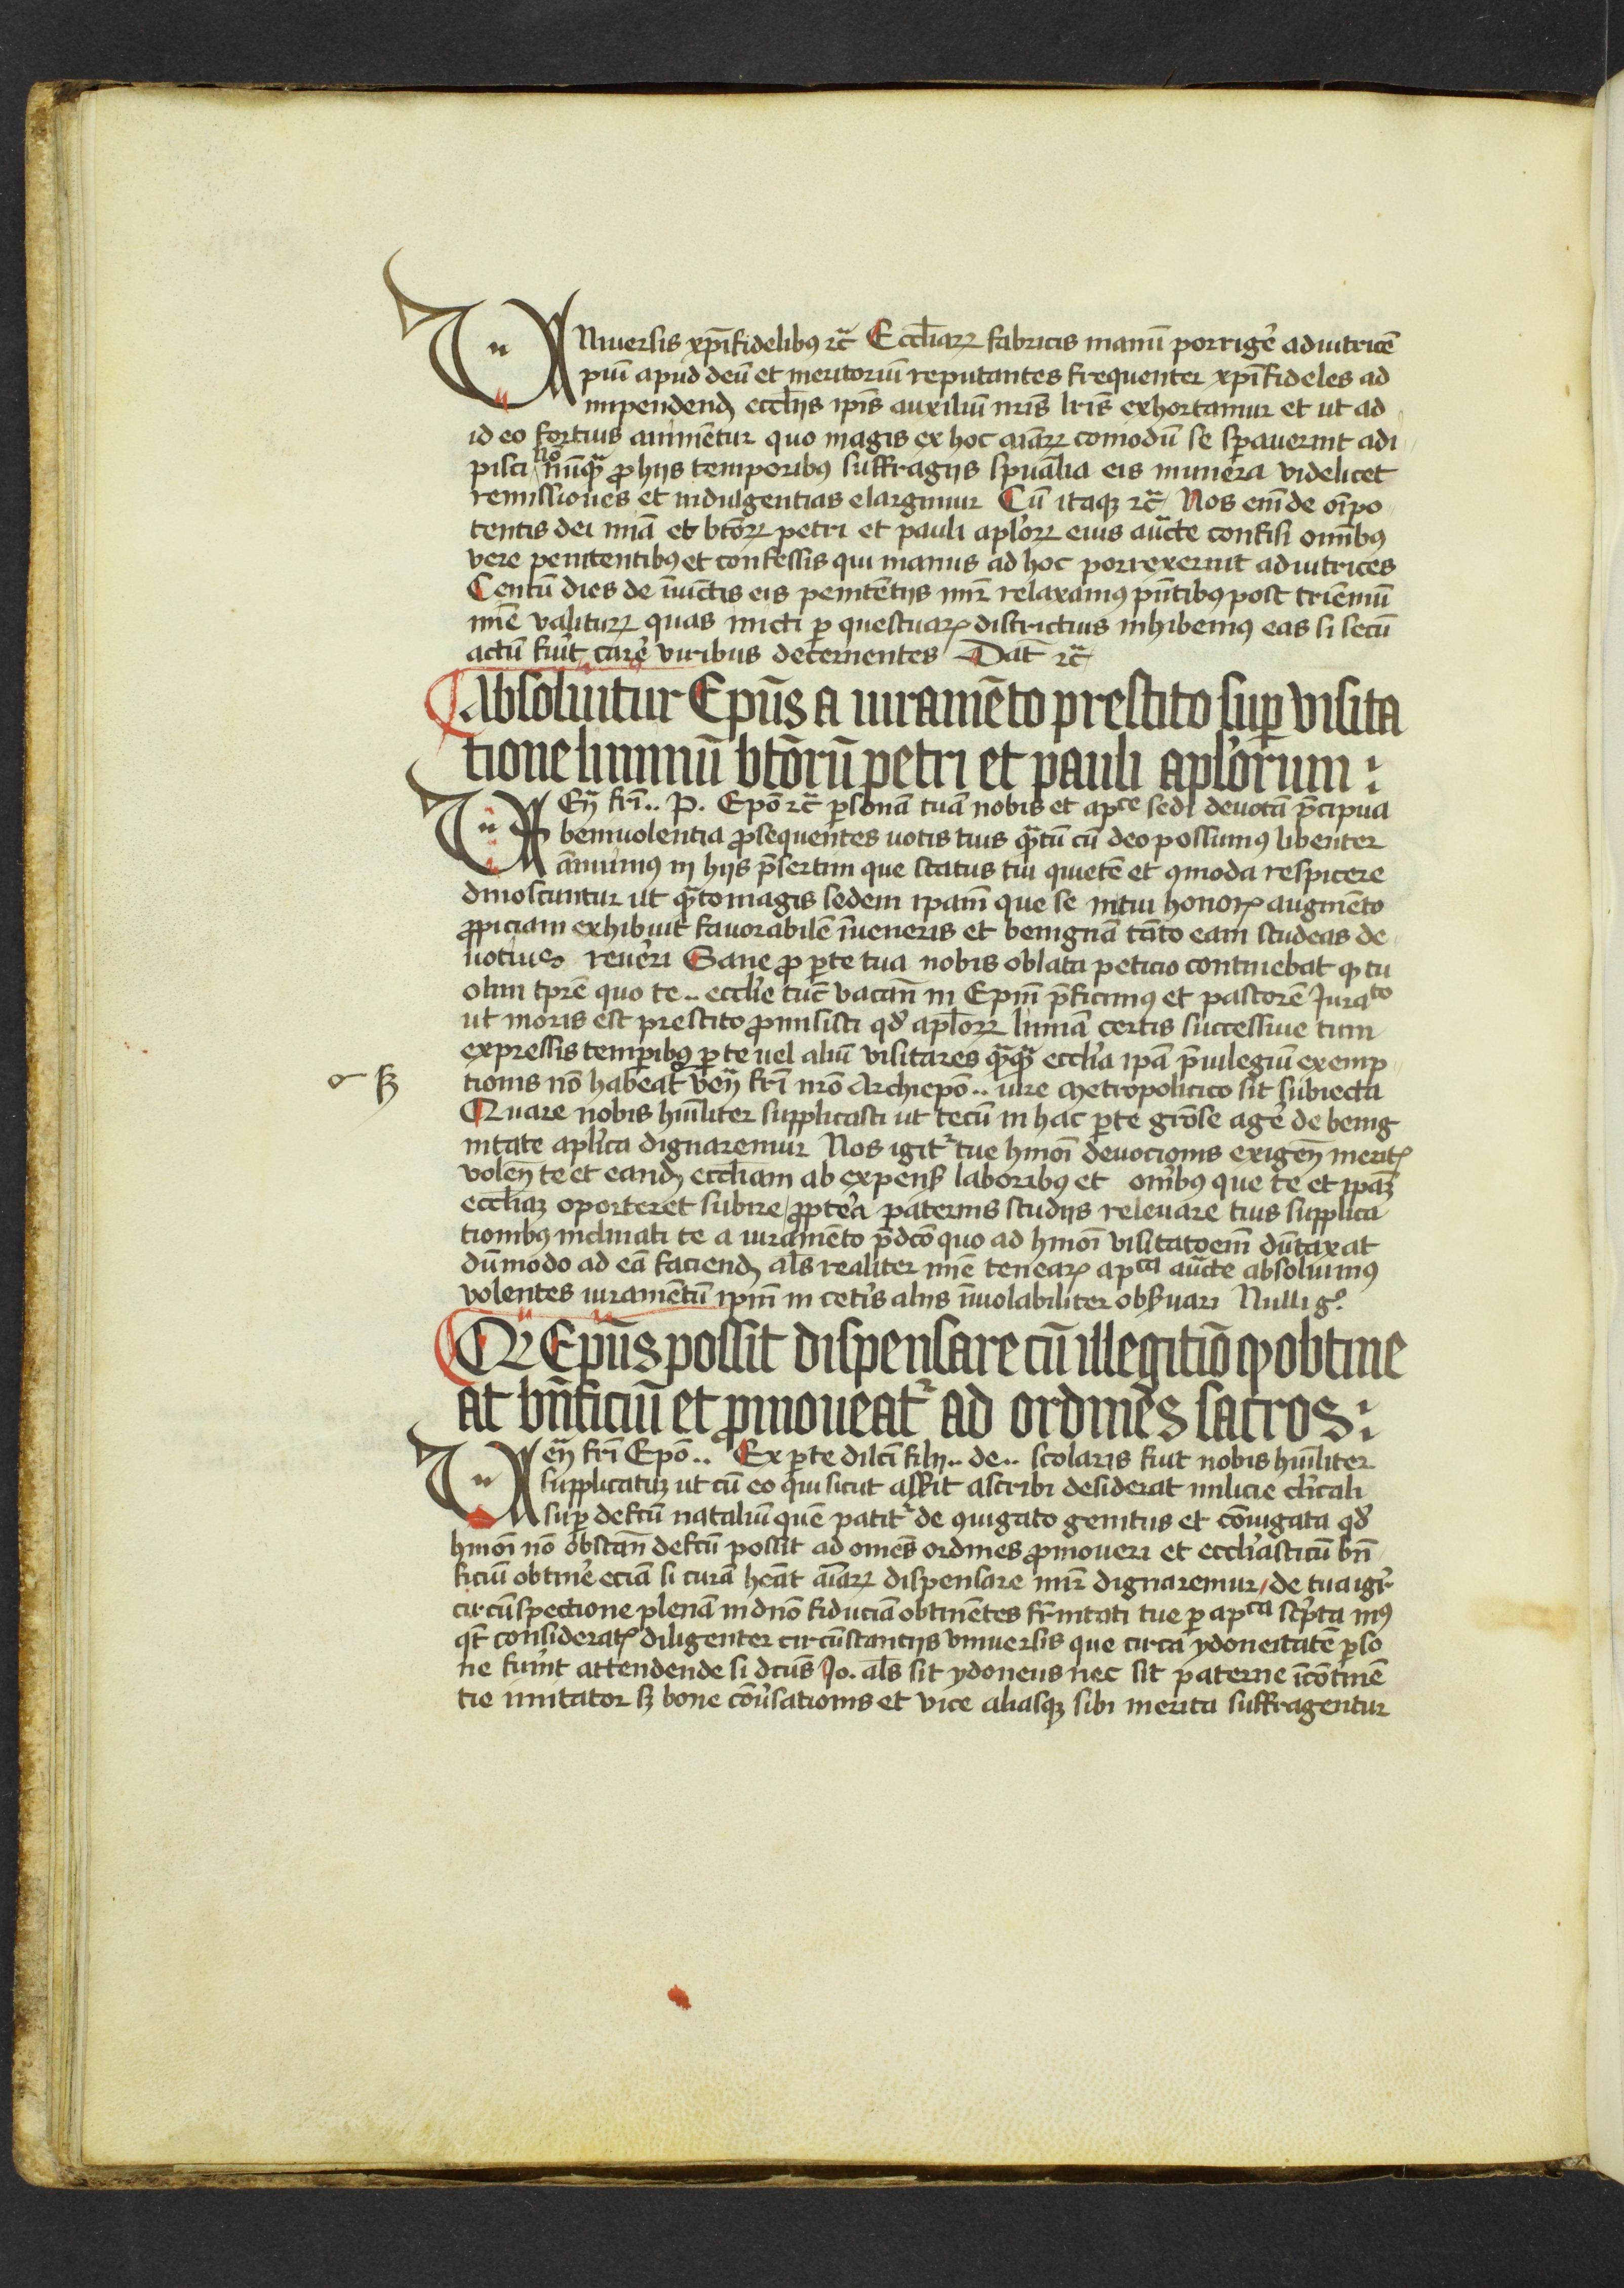 Vniuersis xp̄ifidelibꝰ ⁊c̄ Eccl̄iarꝝ fabricis manū porrige᷎ adiutricē
piū apud deū et meritoriū reputantes frequenter xp̄ifideles ad
impendend̄ eccl̄iis ip̄is auxiliū nr̄is lr̄is exhortamur et ut ad
id eo fortius animētur quo magis ex hoc aīarꝝ comodū se sperauerint adi
pisci nō nūqꝫ ꝓ hijs temporibꝰ suffragijs sp̄ualia eis munera videlicet
remissiones et indulgentias elargimur Cū itaqꝫ ⁊c̄ Nos eni᷎ de oīpo
tentis dei mīa et bt̄orꝝ petri et pauli apl̄orꝝ eius au᷎cte confisi omībꝰ
vere penitentibꝰ et confessis qui manus ad hoc porrexerint adiutrices
Centū dies de īiūctis eis penitētijs mi᷎r relaxamꝰ p̄ntibꝰ post trienniū
mīe valiturꝝ quas micti ꝑ questuarꝭ districtius inhibemꝰ eas si secū
actū fuīt care᷎ viribus decernentes Dat̄ ⁊c̄
Absoluitur Ep̄us a iuramēto prestito suꝑ visita
tione liminū bt̄orū petri et pauli apl̄orum :
Ven̄ fr̄i .. P. Ep̄o ⁊c̄ ꝑsonā tuā nobis et apce sedi deuotā p̄cipua
beniuolentia ꝓsequentes uotis tuis quātū cū deo possumꝰ libenter
ānuimꝰ in hijs p̄sertim que status tui quietē et ꝯmoda respicere
dinoscuntur ut quāto magis sedem ip̄am que se in tui honorꝭ augmēto
ꝓpiciam exhibuit fauorabilē īueneris et benignā tāto eam studeas de
uotius reue᷎ri Sane ꝓ ꝑte tua nobis oblata peticio continebat ꝙ tu
olim tp̄re quo te .. eccl̄ie tūc vacan̄ in Ep̄m p̄ficimꝰ et pastorē Jurato
ut moris est prestito ꝓmisisti qd᷎ apl̄orꝝ limīa certis successiue tum
expressis temꝑibꝰ ꝑ te uel aliū visitares quāqꝫ eccl̄ia ip̄a p̄uilegiū exemp
tionis nō habeat ven̄ fr̄i nr̄o Archiep̄o .. iure Metropolitico sit subiecta
Quare nobis hūiliter supplicasti ut tecū in hac ꝑte gr̄ose age᷎ de benig
nitate apl̄ica dignaremur Nos igitr tue hmōi deuocionis exigen̄ meritꝭ
volen̄ te et eand̄ eccl̄iam ab expenß laboribꝰ et on᷎ibꝰ que te et ip̄aꝫ
eccl̄iaꝫ oporteret subire ꝓpte᷎a paternis studijs releuare tuis supplica
tionibꝰ inclinati te a iuramēto p̄dc̄o quo ad hmōi visitatōem̄ dūtaxat
dūmodo ad eā faciend̄ al̄s realiter mīe tenearꝭ apca au᷎cte absoluimꝰ
volentes iuramētū ip̄m in cete᷎is aliis īuiolabiliter obß̄uari Nulli go
Qꝛ Ep̄us possit dispensare cū illegitīo ꝙ obtine
at bn̄ficiū et ꝓmoueatr ad ordines sacros :
Ven̄ fr̄i Ep̄o .. Ex ꝑte dilc̄i filij .. de .. scolaris fuit nobis hūiliter
supplicatuꝫ ut cū eo qui sicut asserit ascribi desiderat milicie cl᷎icali
suꝑ defcū nataliū quē patitr de ꝯiugato genitus et cōiugata qd᷎
hmōi nō obstan̄ defcū possit ad omēs ordines ꝓmoueri et eccl̄iasticū bn̄
ficiū obtine᷎ eciā si curā he᷎at aīarꝝ dispensare mi᷎r dignaremur / de tua igr᷎
circūspectione plenā in dn̄o fiduciā obtinētes fr̄nitati tue ꝑ apca sc᷎pta mꝰ
qt̄ consideratꝭ diligenter circūstancijs vniuersis que circa ydoneitatē ꝑso
ne fue᷎int attendende si dc̄us Jo. al̄s sit ydoneus nec sit paterne īcōtinē
tie imitator sꝫ bone cōu᷎sationis et vite aliasqꝫ sibi merita suffragentur